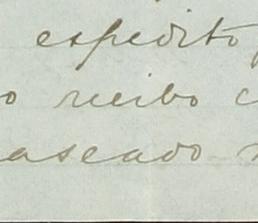 espedito
o recibo c
aseado